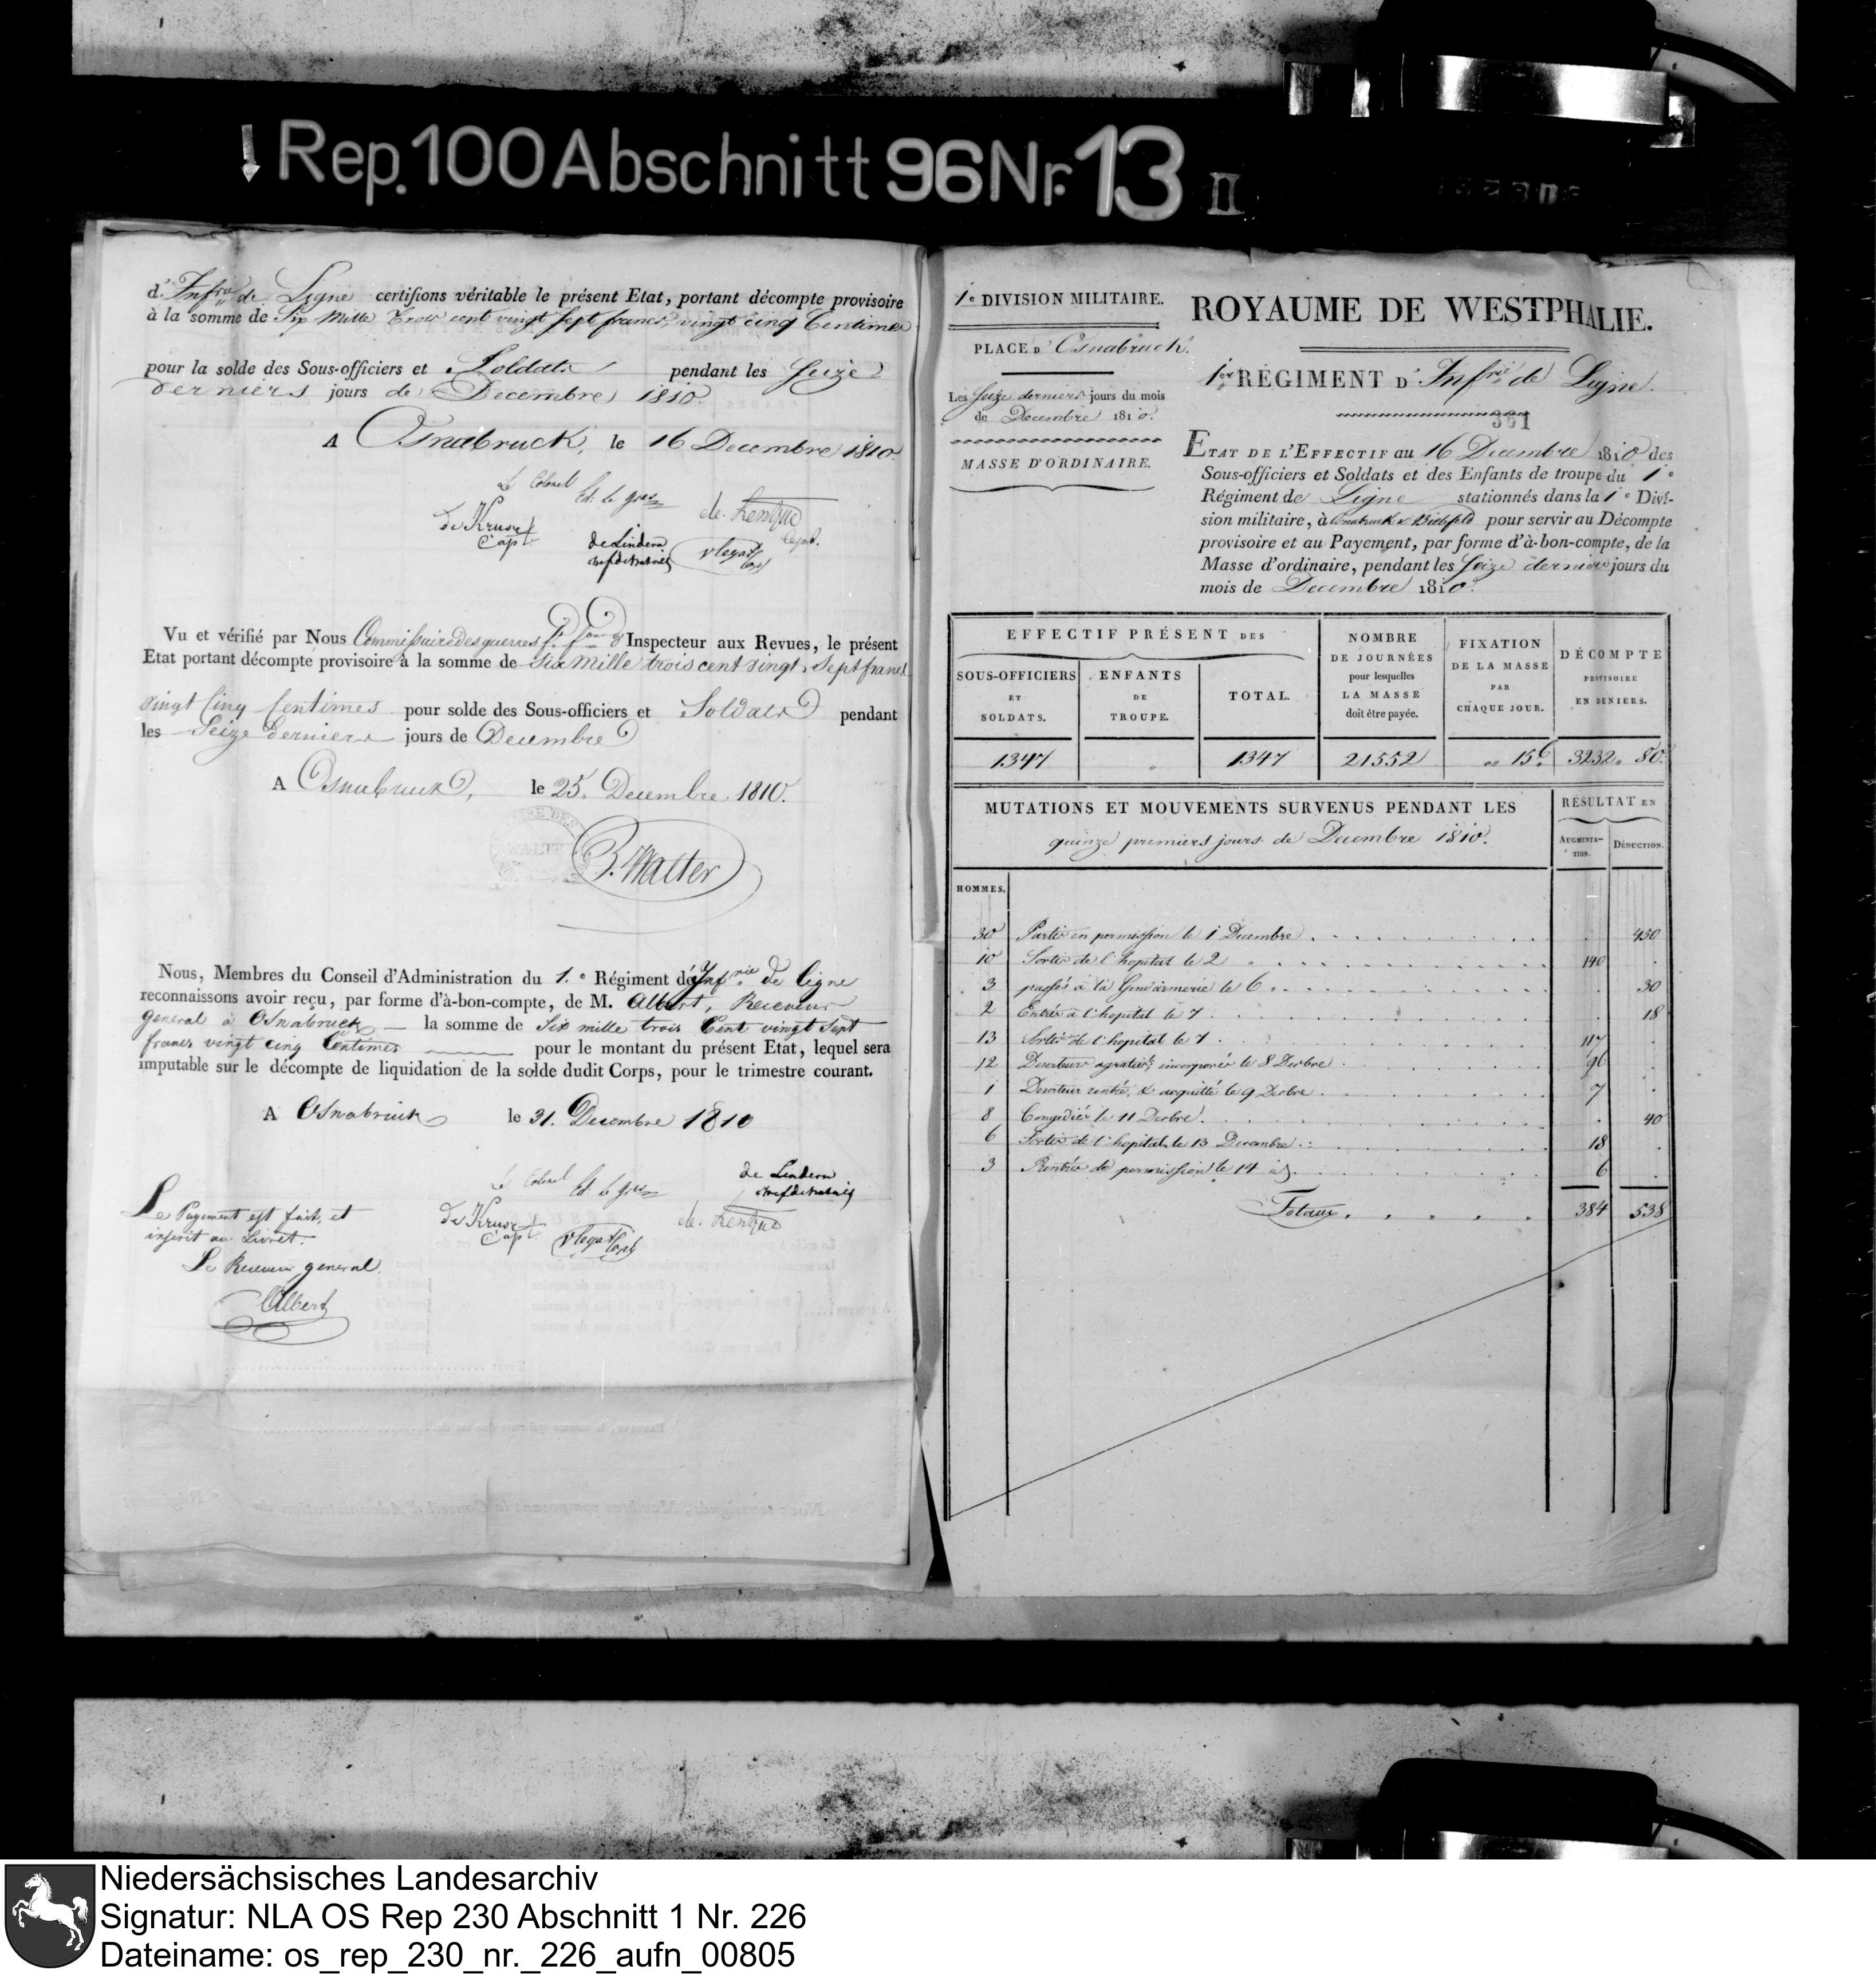 Rep. 100 Abschnitt 96 Nr. 13 II
d'Inf.rie de Ligne certifions véritable le présent Etat, portant décompte provisoire
à la somme de Six Mille Trois cent vingt sept francs, vingt cinq Centimes
pour la solde des Sous-officiers et Soldats pendant les Seize
derniers jours de Decembre 1810.
A Osnabruck, le 16 Decembre 1810.
Le Colonel
de Kruse
Capt
de Lindern
Vu et vérifié par Nous Commissaire des guerres Inspecteur aux Revues, le présent
Etat portant décompte provisoire à la somme de Six Mille trois cent vingt Sept francs
vingt Cinq Centimes pour solde des Sous-officiers et Soldats pendant
les Seize Derniers jours de Decembre
A Osnabruck, le 25. Decembre 1810.
Walter
Nous, Membres du Conseil d'Administration du 1.e Régiment d'Inf.rie de ligne
reconnaissons avoir reçu, par forme d'à-bon-compte, de M. Albert, Receveur
general à Osnabruck — la somme de Six mille trois Cent vingt sept
francs vingt cinq Centimes pour le montant du présent Etat, lequel sera
imputable sur le décompte de liquidation de la solde dudit Corps, pour le trimestre courant.
A Osnabruck le 31. Decembre 1810
Le Colonel
de Lindern
de Kruse
Capt
Le Payement est fait, et
inscrit au Livret.
Le Receveur general
Albert
1.e DIVISION MILITAIRE.
PLACE D'Osnabruck.
Les Seize derniers jours du mois
de Decembre 1810.
MASSE D'ORDINAIRE.
ROYAUME DE WESTPHALIE.
1.er RÉGIMENT D'Inf.rie de Ligne.
361
ETAT DE L'EFFECTIF au 16 Decembre 1810 des
Sous-officiers et Soldats et des Enfants de troupe du 1.e
Régiment de Ligne stationnés dans la 1.e Divi-
sion militaire, à Osnabruck & Bielefeld pour servir au Décompte
provisoire et au Payement, par forme d'à-bon-compte, de la
Masse d'ordinaire, pendant les Seize derniers jours du
mois de Decembre 1810.
EFFECTIF PRÉSENT DES
SOUS-OFFICIERS ET SOLDATS.
ENFANTS DE TROUPE.
TOTAL.
NOMBRE DE JOURNÉES pour lesquelles LA MASSE doit être payée.
FIXATION DE LA MASSE PAR CHAQUE JOUR.
DÉCOMPTE PROVISOIRE EN DENIERS.
1347 1347 21552 15c 3232. 80.
MUTATIONS ET MOUVEMENTS SURVENUS PENDANT LES
quinze premiers jours de Decembre 1810.
RÉSULTAT EN
AUGMENTA-
TION.
DÉDUCTION.
HOMMES.
30 Partis en permission le 1 Decembre 450
10 Sortis de l'hopital le 2 140
3 passés à la Gendarmerie le 6 30
2 Entrés a l'hopital le 7 18
13 Sortis de l'hopital le 7 117
12 Deserteurs incorporés le 8 Decbre 96
1 Deserteur rentré & acquitté le 9 Decbre 7
8 Congediés le 11 Decbre 40
6 Sortis de l'hopital le 13 Decembre 18
3 Rentrés de permission le 14 6
Totaux 384 538
Niedersächsisches Landesarchiv
Signatur: NLA OS Rep 230 Abschnitt 1 Nr. 226
Dateiname: os_rep_230_nr._226_aufn_00805